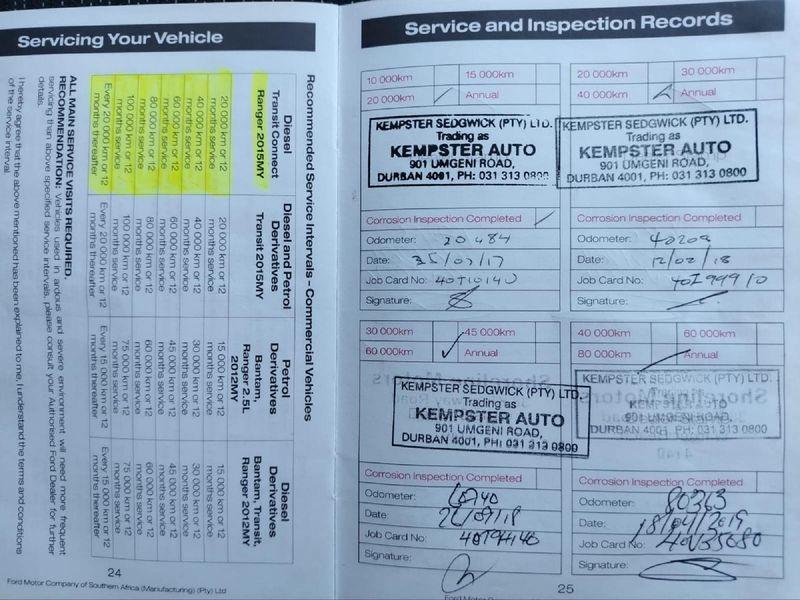 Servicing Your Vehicle
Recommended Service Intervals - Commercial Vehicles
Diesel
Transit Connect
Ranger 2015MY
20 000 km or 12
months service
40 000 km or 12
months service
60 000 km or 12
months service
80 000 km or 12
months service
100 000 km or 12
months service
Every 20 000 km or 12
months thereafter
Diesel and Petrol
Derivatives
Transit 2015MY
20 000 km or 12
months service
40 000 km or 12
months service
60 000 km or 12
months service
80 000 km or 12
months service
100 000 km or 12
months service
Every 20 000 km or 12
months thereafter
Petrol
Derivatives
Bantam,
Ranger 2.5L
2012MY
15 000 km or 12
months service
30 000 km or 12
months service
45 000 km or 12
months service
60 000 km or 12
months service
75 000 km or 12
months service
Every 15 000 km or 12
months thereafter
Diesel
Derivatives
Bantam, Transit,
Ranger 2012MY
15 000 km or 12
months service
30 000 km or 12
months service
45 000 km or 12
months service
60 000 km or 12
months service
75 000 km or 12
months service
Every 15 000 km or 12
months thereafter
ALL MAIN SERVICE VISITS REQUIRED.
RECOMMENDATION: Vehicles used in ardous and severe environment will need more frequent
servicing than above specified service intervals, please consult your Authorised Ford Dealer for further
details.
I hereby agree that the above mentioned has been explained to me, I understand the terms and conditions
of the service interval.
24
Ford Motor Company of Southern Africa (Manufacturing) (Pty) Ltd
Service and Inspection Records
10 000km 15 000km
20 000km Annual
KEMPSTER SEDGWICK (PTY) LTD.
Trading as
KEMPSTER AUTO
901 UMGENI ROAD,
DURBAN 4001, PH: 031 313 0800
Corrosion Inspection Completed
Odometer: 20 484
Date: 25/07/17
Job Card No:
Signature:
20 000km 30 000km
40 000km Annual
KEMPSTER SEDGWICK (PTY) LTD.
Trading as
KEMPSTER AUTO
901 UMGENI ROAD,
DURBAN 4001, PH: 031 313 0800
Corrosion Inspection Completed
Odometer: 40209
Date: 12/02/18
Job Card No:
Signature:
30 000km 45 000km
60 000km Annual
KEMPSTER SEDGWICK (PTY) LTD.
Trading as
KEMPSTER AUTO
901 UMGENI ROAD,
DURBAN 4001, PH: 031 313 0800
Corrosion Inspection Completed
Odometer:
Date:
Job Card No:
Signature:
40 000km 60 000km
80 000km Annual
KEMPSTER SEDGWICK (PTY) LTD.
KEMPSTER AUTO
901 UMGENI ROAD,
DURBAN 4001, PH: 031 313 0800
Corrosion Inspection Completed
Odometer: 80363
Date: 18/04/2019
Job Card No:
Signature:
25